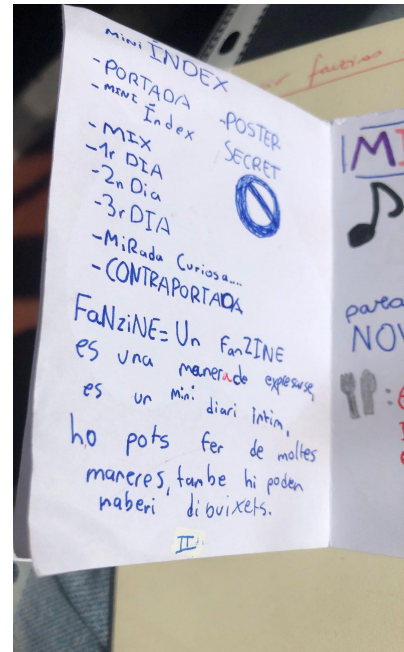 MINI ÍNDEX
- PORTADA
- MINI Índex
- MIX
- 1r DIA
- 2n Dia
- 3r DIA
- MiRada Curiosa...
- CONTRAPORTADA
- POSTER
SECRET
FaNziNE= Un FanZINE
es una manera de expresarse,
es un mini diari íntim,
ho pots fer de moltes
maneres, tambe hi poden
haberi dibuixets.
II
fanzine
MI
parea
NOV
: